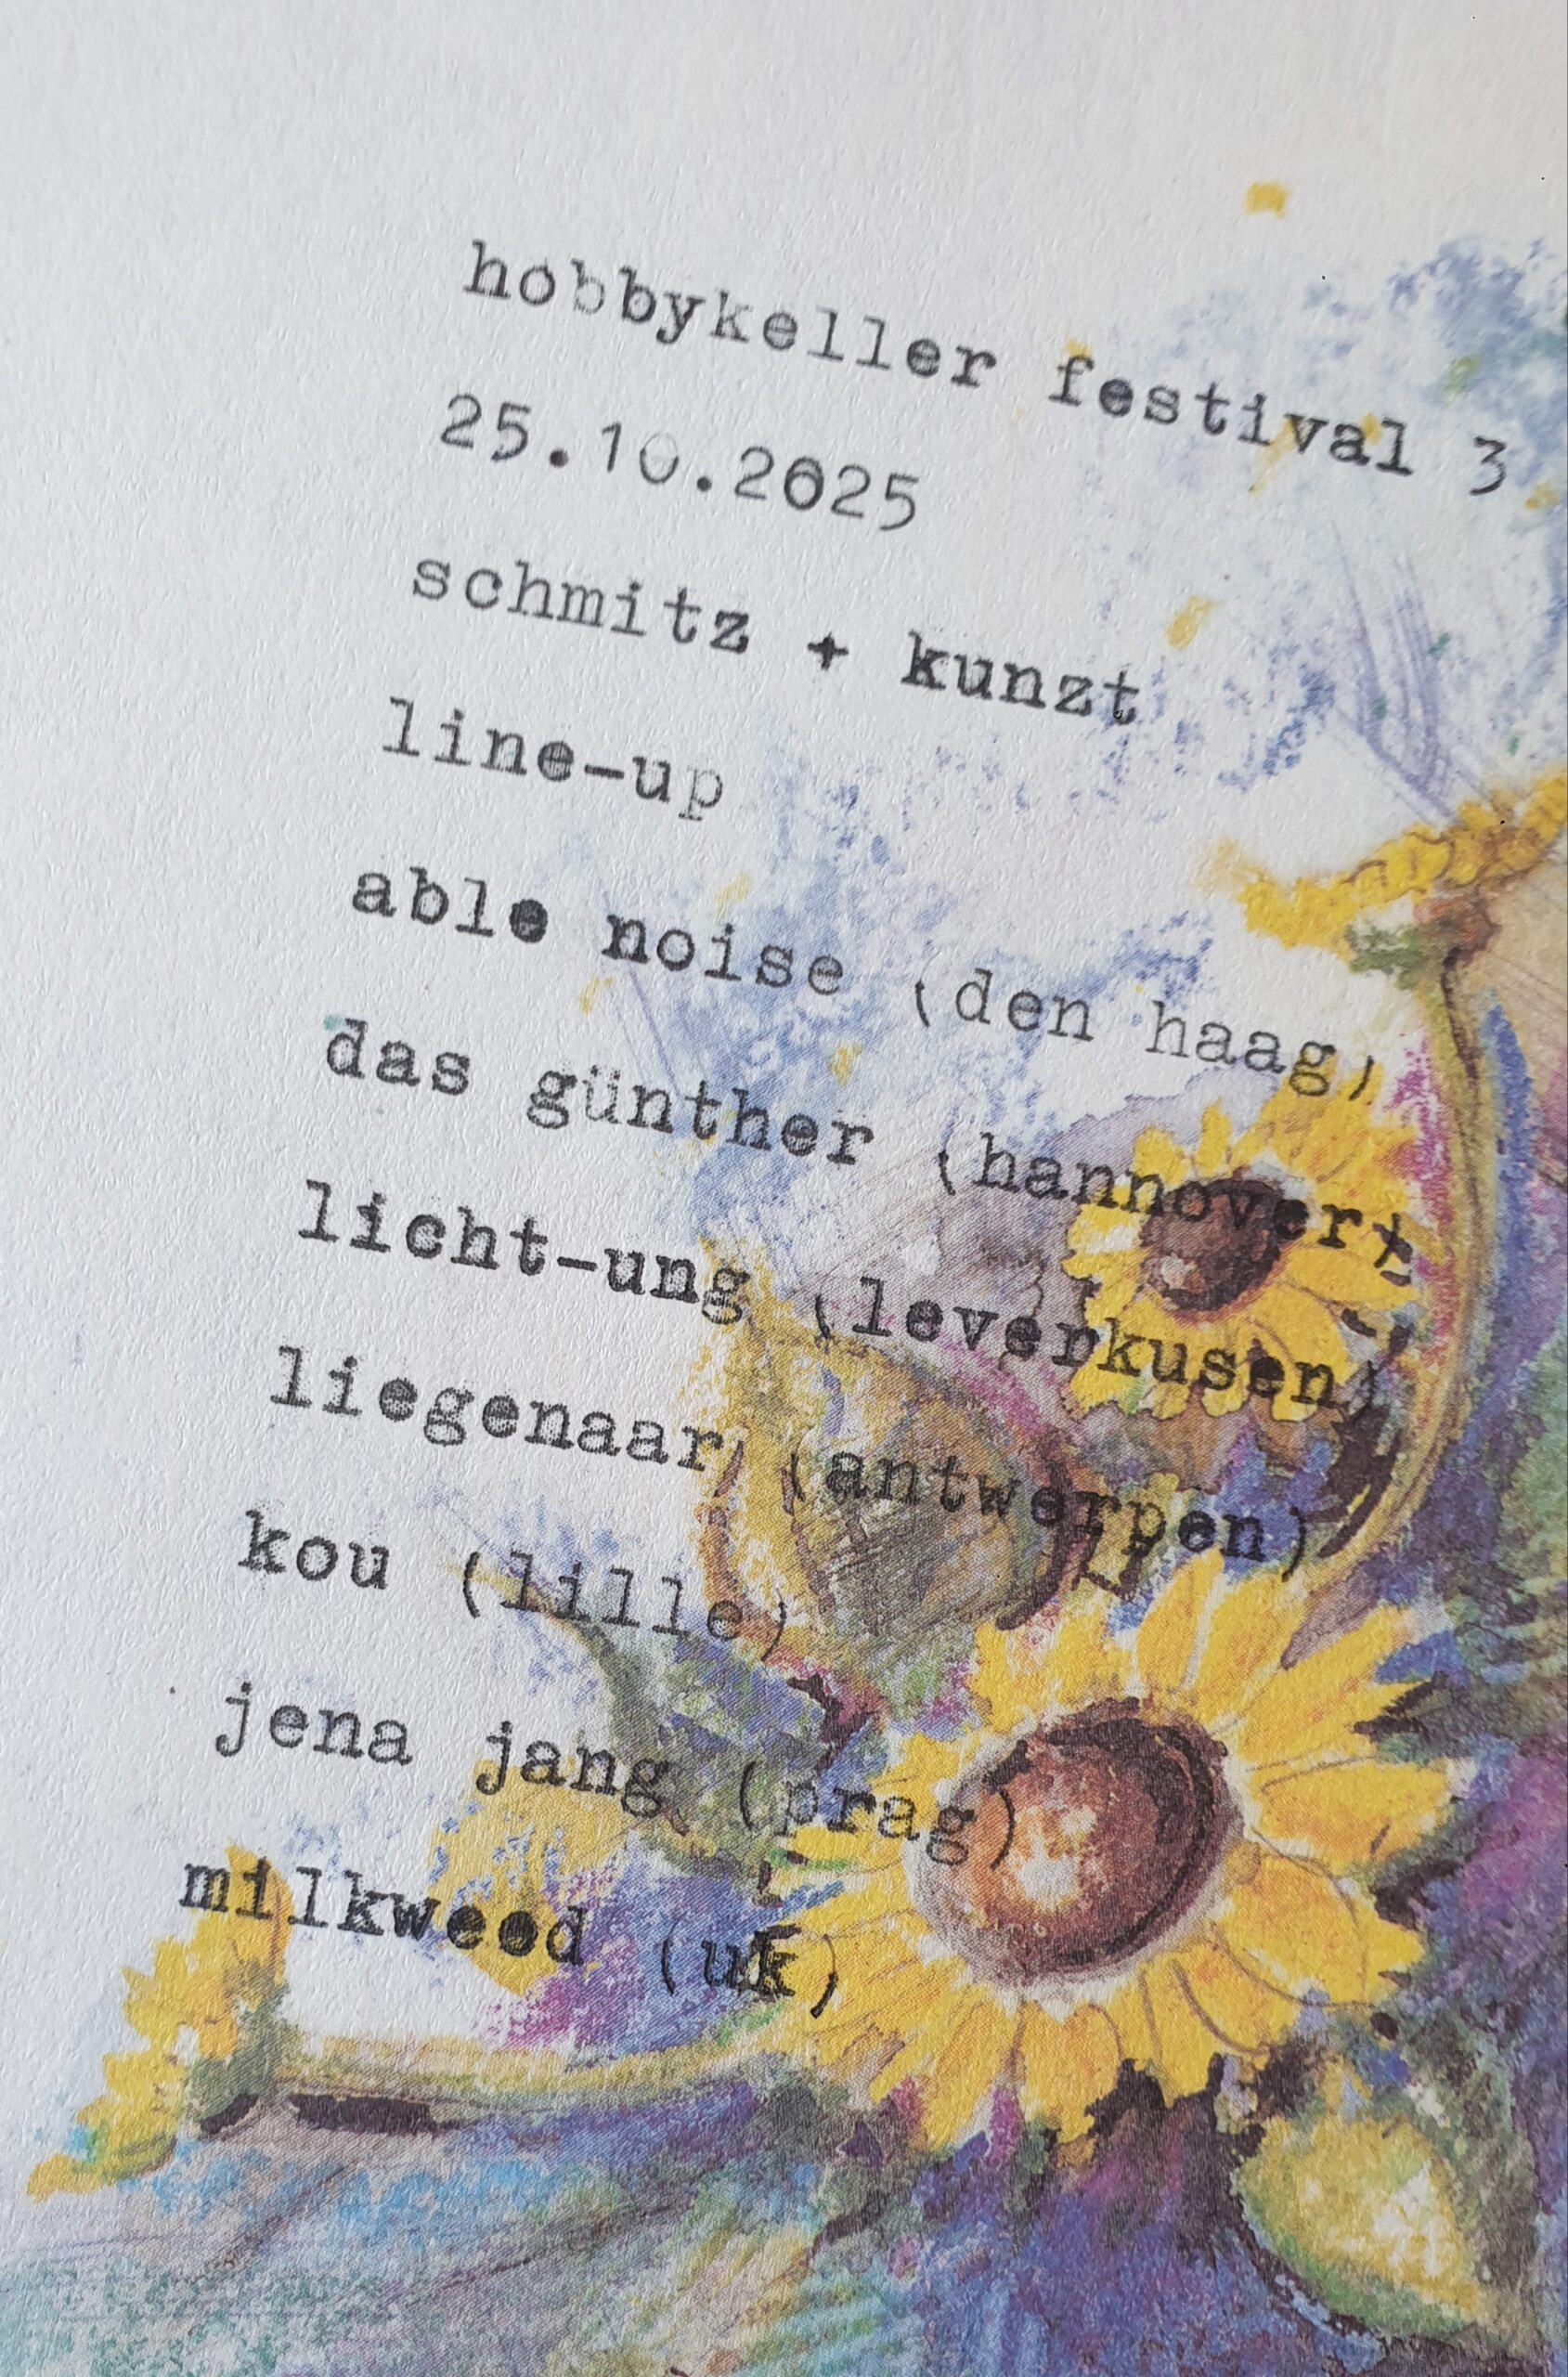 hobbykeller festival 3
25.10.2025
schmitz + kunzt
line-up
able noise (den haag)
das günther (hannover)
licht-ung (leverkusen)
liegenaar (antwerpen)
kou (lille)
jena jang (prag)
milkweed (uk)